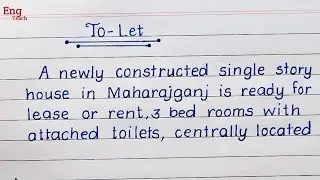 Eng
Teach
To-Let
A newly constructed single story
house in Maharajganj is ready for
lease or rent, 3 bed rooms with
attached toilets, centrally located